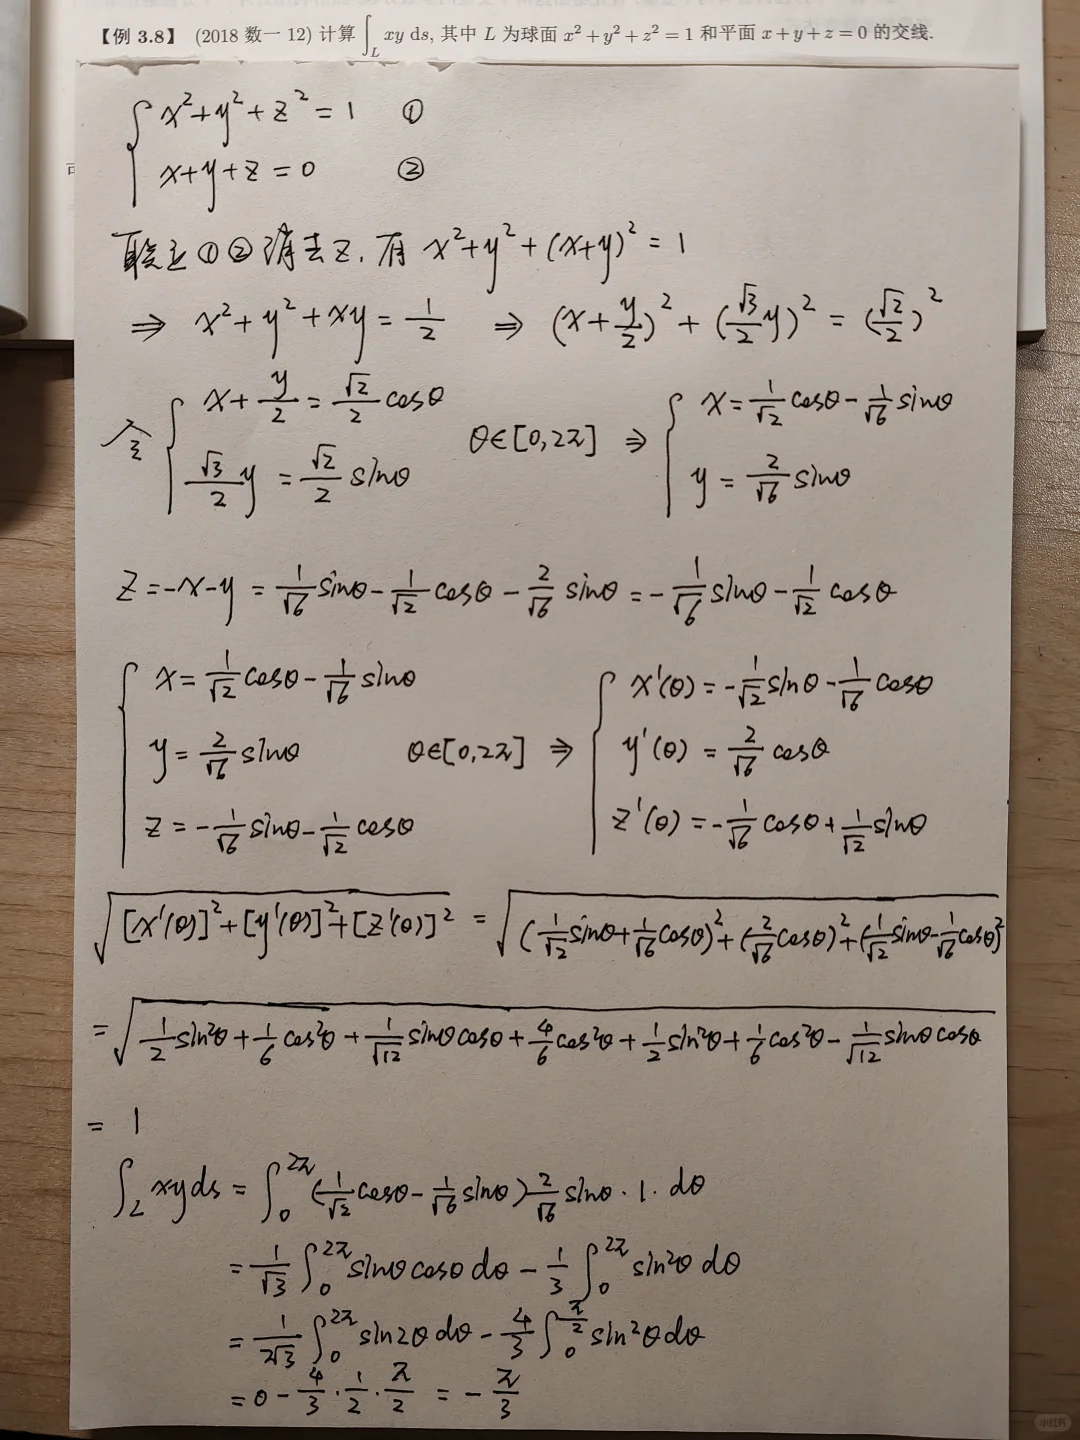 【例 3.8】 (2018 数一 12) 计算 ∫_L xy ds, 其中 L 为球面 x²+y²+z²=1 和平面 x+y+z=0 的交线.
{ x²+y²+z²=1 ①
x+y+z=0 ②
联立①②消去z, 有 x²+y²+(x+y)²=1
⇒ x²+y²+xy=1/2 ⇒ (x+y/2)²+(√3/2 y)²=(√2/2)²
令 { x+y/2=√2/2 cosθ
√3/2 y=√2/2 sinθ θ∈[0,2π] ⇒ { x=1/√2 cosθ-1/√6 sinθ
y=2/√6 sinθ
z=-x-y=1/√6 sinθ-1/√2 cosθ-2/√6 sinθ=-1/√6 sinθ-1/√2 cosθ
{ x=1/√2 cosθ-1/√6 sinθ { x'(θ)=-1/√2 sinθ-1/√6 cosθ
y=2/√6 sinθ θ∈[0,2π] ⇒ y'(θ)=2/√6 cosθ
z=-1/√6 sinθ-1/√2 cosθ z'(θ)=-1/√6 cosθ+1/√2 sinθ
√([x'(θ)]²+[y'(θ)]²+[z'(θ)]²) = √((1/√2 sinθ+1/√6 cosθ)²+(2/√6 cosθ)²+(1/√2 sinθ-1/√6 cosθ)²)
=√(1/2 sin²θ+1/6 cos²θ+1/√12 sinθcosθ+4/6 cos²θ+1/2 sin²θ+1/6 cos²θ-1/√12 sinθcosθ)
= 1
∫_L xyds=∫_0^2π (1/√2 cosθ-1/√6 sinθ)2/√6 sinθ·1·dθ
=1/√3 ∫_0^2π sinθcosθdθ-1/3 ∫_0^2π sin²θdθ
=1/2√3 ∫_0^2π sin2θdθ-4/3 ∫_0^π/2 sin²θdθ
=0-4/3·1/2·π/2=-π/3
小红书